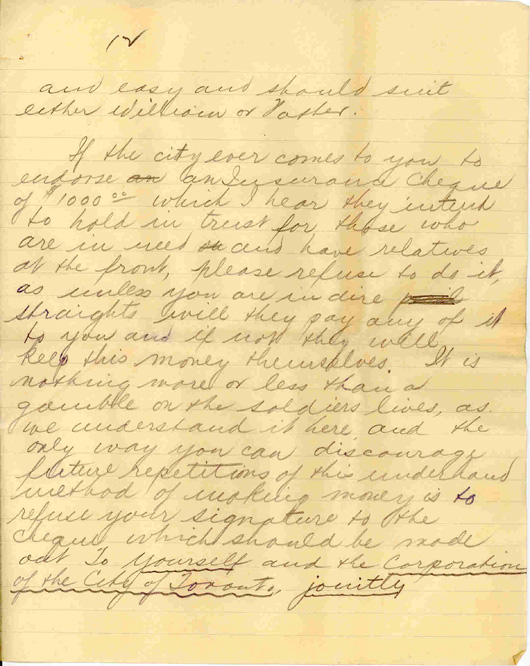 12
and easy and should suit
either William or Father.
If the city ever comes to you to
endorse an an Insurance Cheque
of $1000.00 which I hear they intend
to hold in trust for those who
are in need so and have relatives
at the front, please refuse to do it,
as unless you are in dire
straights will they pay any of it
to you and if not they will
keep this money themselves. It is
nothing more or less than a
gamble on the soldiers lives, as
we understand it here and the
only way you can discourage
future repetitions of this underhand
method of making money is to
refuse your signature to the
cheque which should be made
out To yourself and the Corporation
of the City of Toronto, jointly